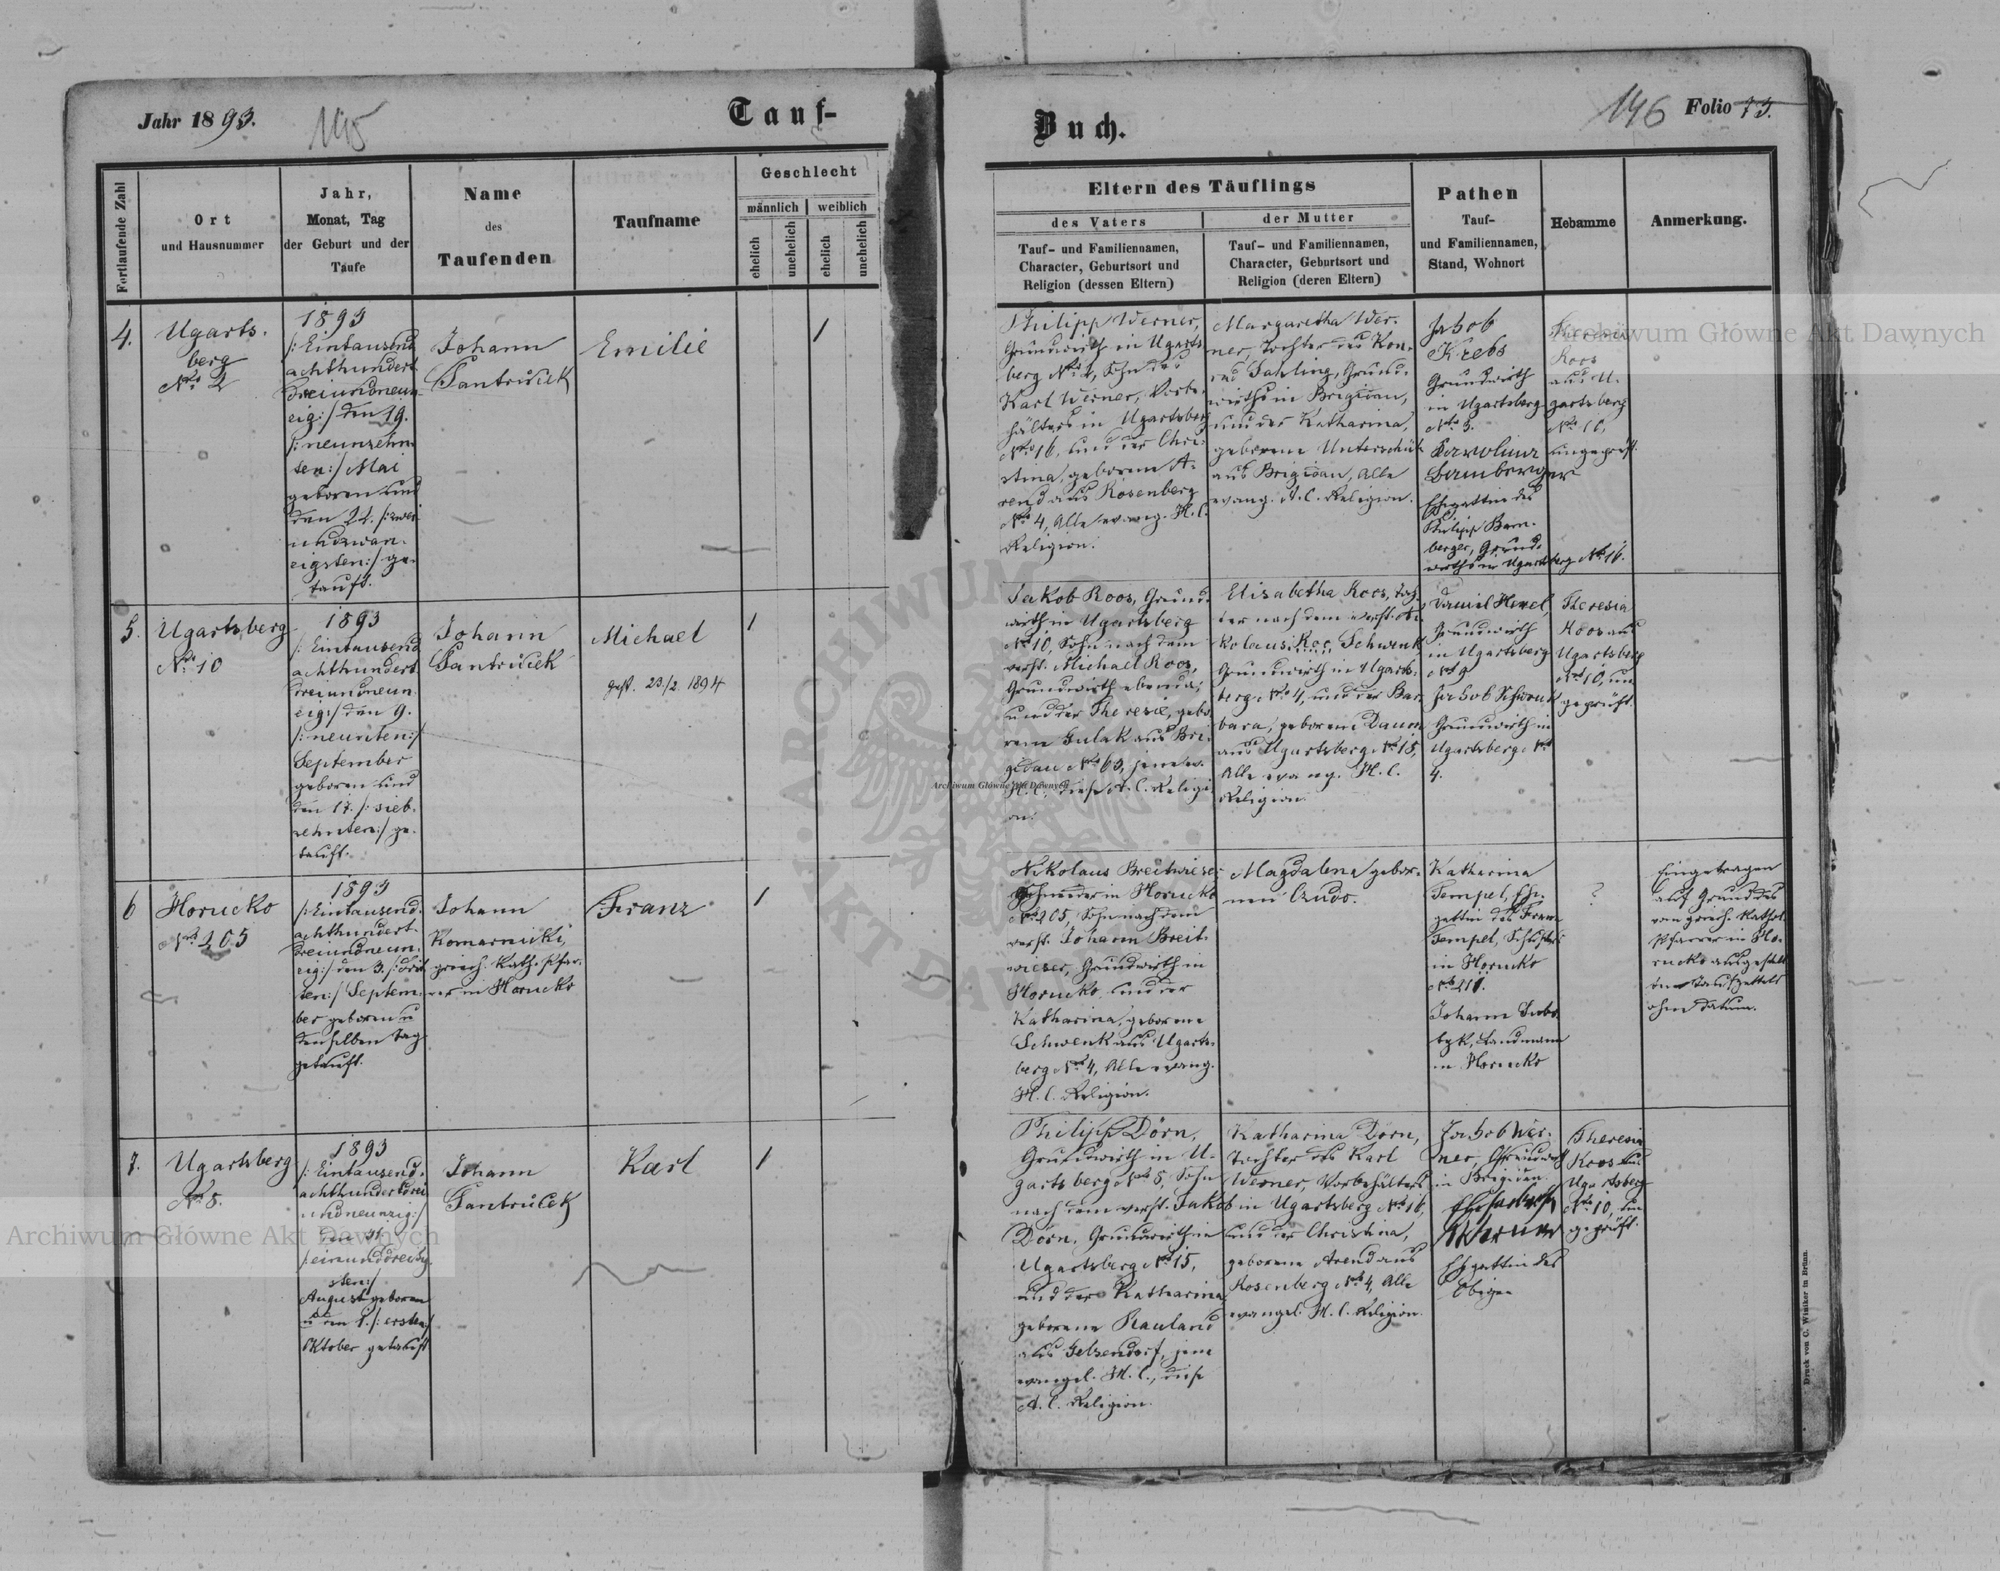 Jahr 1893.
145
Tauf-
Buch.
146 Folio 73.
Fortlaufende Zahl
Ort
und Hausnummer
Jahr,
Monat, Tag
der Geburt und der
Taufe
Name
des
Taufenden
Taufname
Geschlecht
männlich
weiblich
ehelich
unehelich
ehelich
unehelich
Eltern des Täuflings
des Vaters
Tauf- und Familiennamen,
Character, Geburtsort und
Religion (dessen Eltern)
der Mutter
Tauf- und Familiennamen,
Character, Geburtsort und
Religion (deren Eltern)
Pathen
Tauf-
und Familiennamen,
Stand, Wohnort
Hebamme
Anmerkung.
4.
Ugarts-
berg
No 2
1893
/:Eintausend
achthundert
dreiundneun
zig:/ den 19.
/:neunzehn
ten:/ Mai
geboren und
den 22. /:zwei
undzwan-
zigsten:/ ge-
tauft.
Johann
Emilie
1
Philipp Werner,
Grundwirth in Ugarts
berg No 2, Sohn des
Karl Werner, Vorbe-
hälters in Ugartsberg
No 16, und der Chri-
stina, geborene A-
rend aus Rosenberg
No 4, Alle evang. H. C.
Religion.
Margaretha Wer-
ner, Tochter des Kon-
rad Fahling, Grund-
wirths in Brigidau,
und der Katharina,
geborene
aus Brigidau, Alle
evang. A. C. Religion.
Jakob
Krebs
Grundwirth
in Ugartsberg
No 3.
Karolina
Bamberger
Ehegattin des
Philipp Bam-
berger, Grund-
wirths in Ugartsberg No 16.
Koos
aus U-
gartsberg
No 10,
ungeprüft.
5.
Ugartsberg
No 10
1893
/:Eintausend
achthundert
dreiundneun
zig:/ den 9.
/:neunten:/
September
geboren und
den 17. /:sieb-
zehnten:/ ge-
tauft.
Johann
Michael
gest. 23/2 1894
1
Jakob Roos, Grund-
wirth in Ugartsberg
No 10, Sohn nach dem
verst. Michael Roos,
Grundwirth ebenda,
und der Theresie, gebo
rene Gulak aus Bri-
gidau No 63, jene ev.
H. C., diese A. C. Religi
on.
Elisabetha Roos, Toch
ter nach dem verst. Ni-
kolaus Schwenk
Grundwirth in Ugarts-
berg No 4, und der Bar-
bara, geborene Daum
aus Ugartsberg No 15,
Alle evang. H. C.
Religion.
Daniel Hexel,
Grundwirth
in Ugartsberg
No 9
Jakob Schwenk
Grundwirth in
Ugartsberg No
4.
Theresia
Koos aus
Ugartsberg
No 10, un
geprüft.
6
Horucko
No 205
1893
/:Eintausend-
achthundert-
dreiundneun-
zig:/ den 3. /:drit
ten:/ Septem-
ber geboren u
denselben Tag
getauft.
Johann
Komarnicki,
griech. kath. Pfar-
rer in Horucko
Franz
1
Nikolaus Breitwieser
Schneider in Horucko
No 205, Sohn nach dem
verst. Johann Breit-
wieser, Grundwirth in
Horucko, und der
Katharina, geborene
Schwenk aus Ugarts-
berg No 4, Alle evang.
H. C. Religion.
Magdalena gebor-
nen
Katharina
Tempel, Ehe-
gattin des Franz
Tempel,
in Horucko
No 211.
Johann
Landmann
in Horucko
?
Eingetragen
auf Grund des
vom griech. kathol.
Pfarrer in Ho-
rucko ausgestell
ten Taufzettels
ohne Datum.
7.
Ugartsberg
No 8.
1893
/:Eintausend-
achthundertdrei
undneunzig:/
den 31
/:einunddreißig
sten:/
August geboren
u den 1. /:ersten:/
Oktober getauft
Johann
Karl
1
Philipp Dörn,
Grundwirth in U-
gartsberg No 8, Sohn
nach dem verst. Jakob
Dörn, Grundwirth in
Ugartsberg No 15,
und der Katharina
geborene Rauland
aus Gelsendorf, jene
evangel. H. C., diese
A. C. Religion.
Katharina Dörn,
Tochter des Karl
Werner, Vorbehälters
in Ugartsberg No 16,
und der Christina,
geborene Arend aus
Rosenberg No 4, Alle
evangel. H. C. Religion.
Jakob Wer-
ner, Grundwirth
in Brigidau
Werner
Ehegattin des
Obigen
Theresia
Koos aus
Ugartsberg
No 10, un
geprüft.
Druck von C. Winiker in Brünn.
Archiwum Główne Akt Dawnych
Archiwum Główne Akt Dawnych
Archiwum Główne Akt Dawnych
ARCHIWUM
AKT DAWNYCH